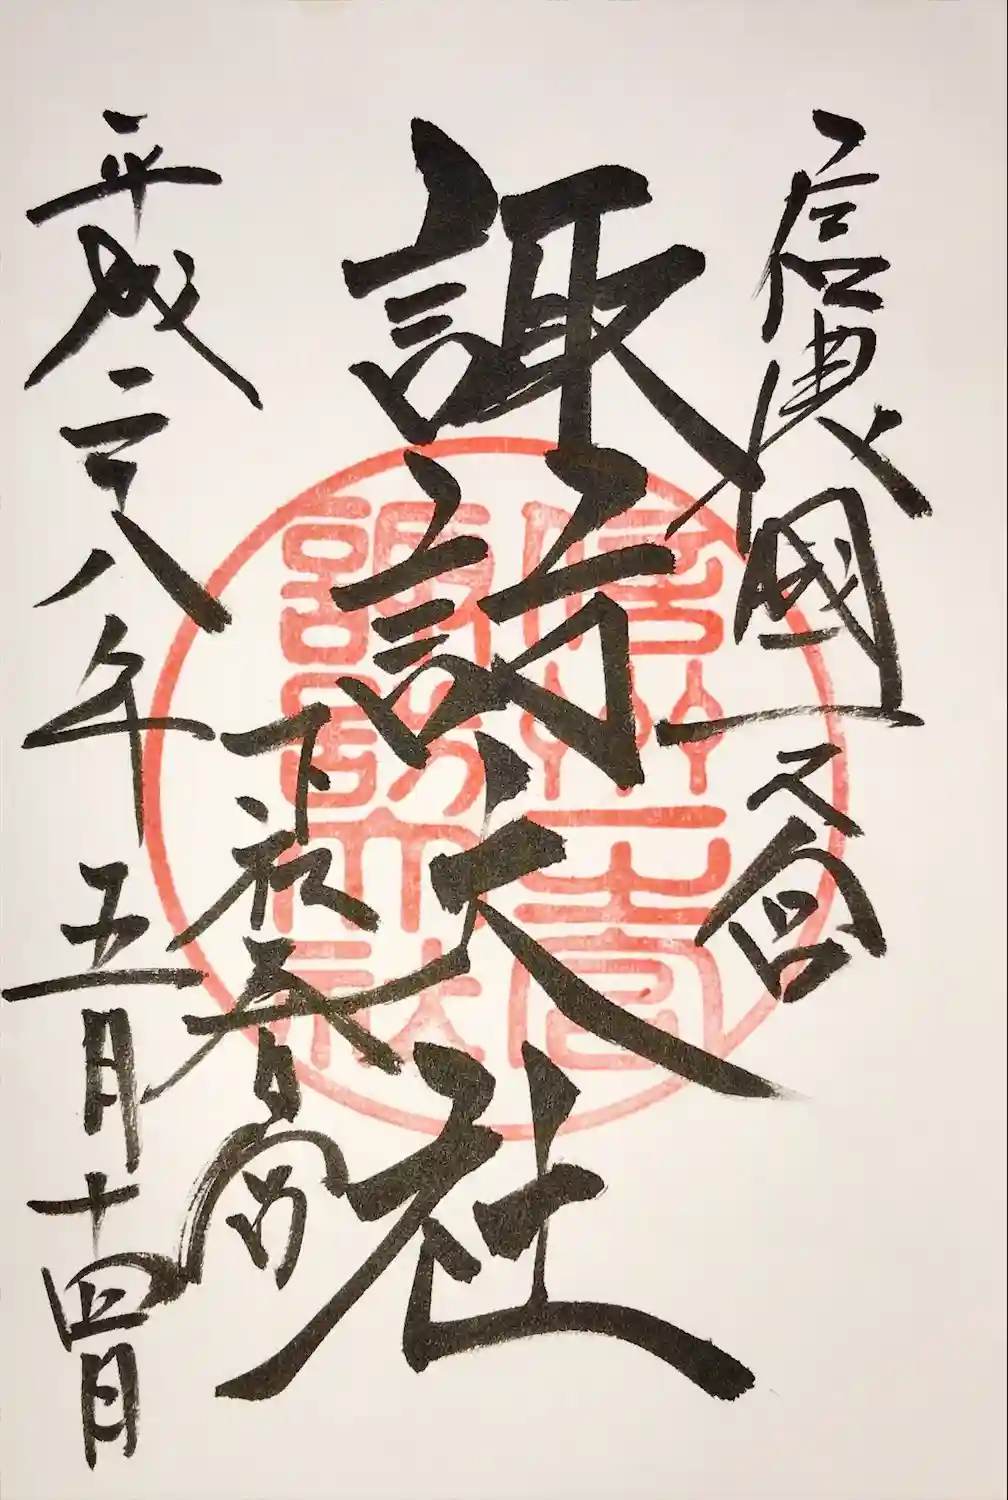 信濃國一之宮
諏訪大社
下社春宮
平成二十八年五月十四日
信州一之宮
諏訪大社